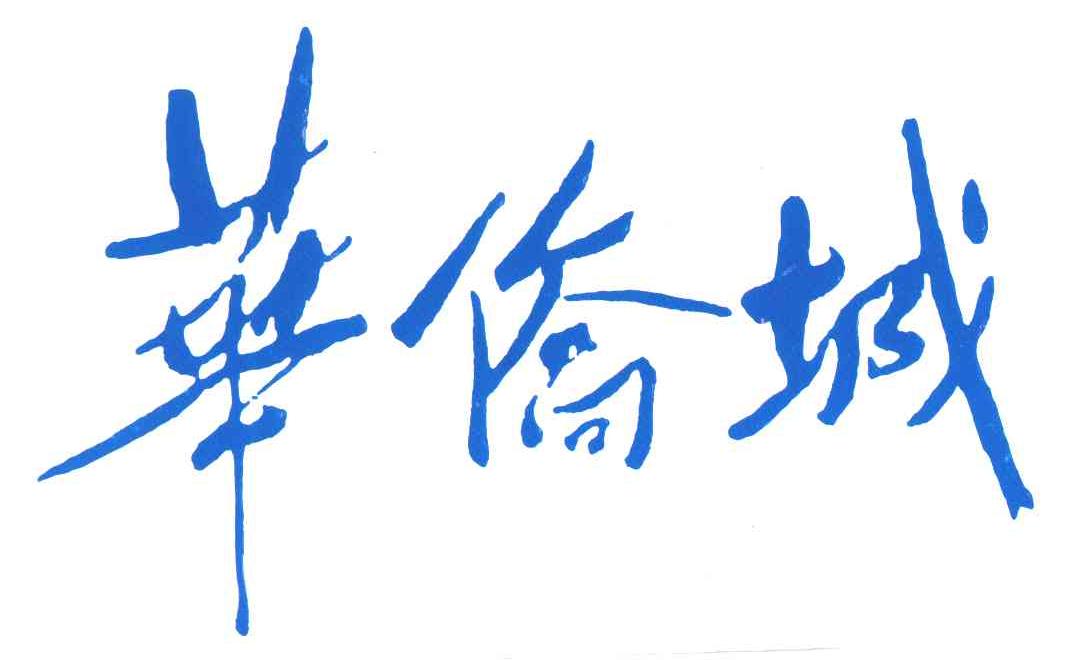 華僑城